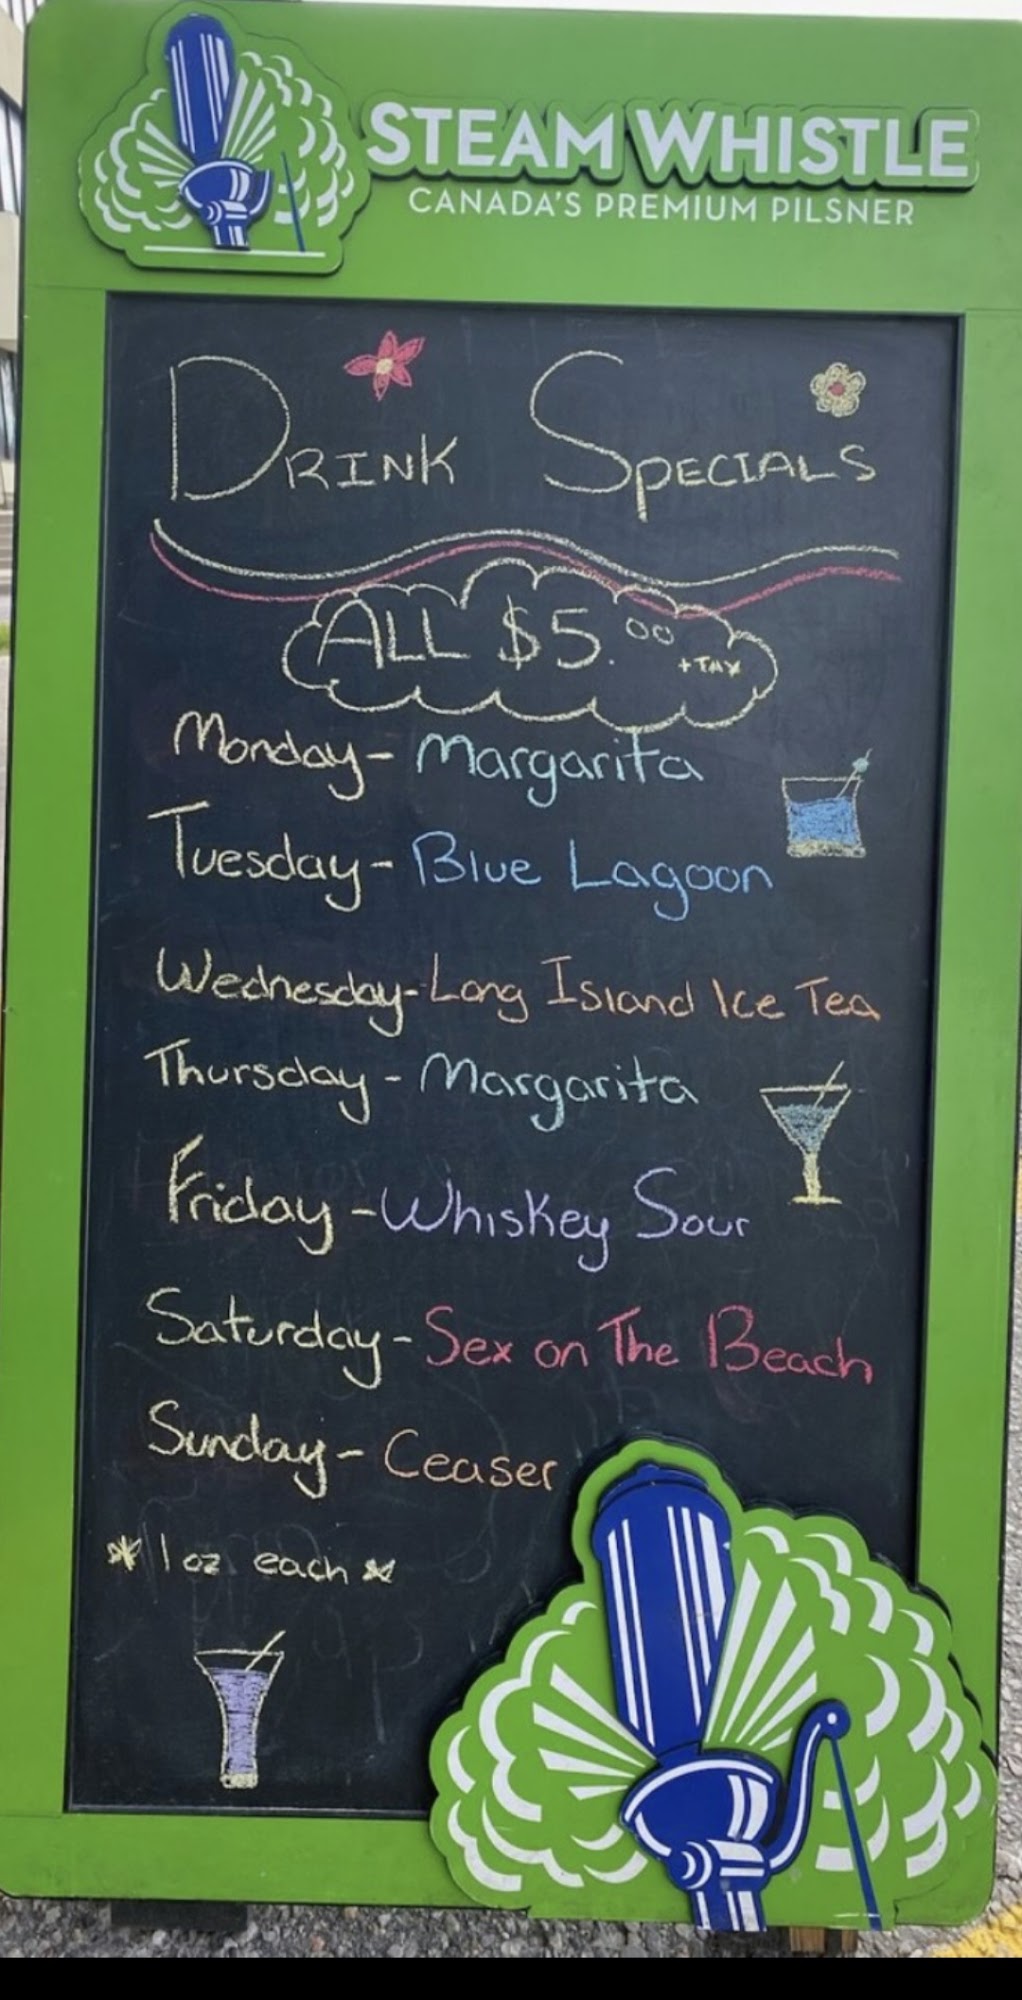 STEAM WHISTLE
CANADA'S PREMIUM PILSNER
DRINK SPECIALS
ALL $5.00 +TAX
Monday - Margarita
Tuesday - Blue Lagoon
Wednesday - Long Island Ice Tea
Thursday - Margarita
Friday - Whiskey Sour
Saturday - Sex on The Beach
Sunday - Ceaser
* 1 oz each *